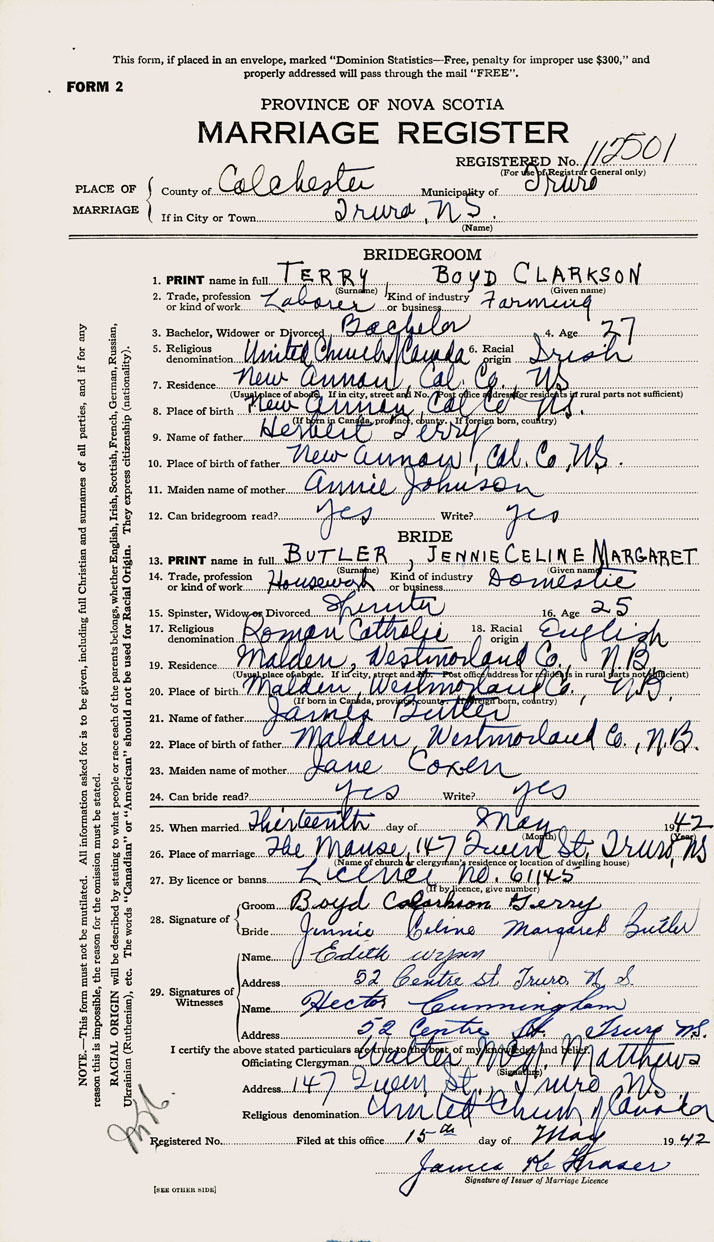 This form, if placed in an envelope, marked "Dominion Statistics—Free, penalty for improper use $300," and
properly addressed will pass through the mail "FREE".
FORM 2
PROVINCE OF NOVA SCOTIA
MARRIAGE REGISTER
REGISTERED No. 112501
(For use of Registrar General only)
PLACE OF MARRIAGE
County of Colchester Municipality of Truro
If in City or Town Truro, N.S.
(Name)
BRIDEGROOM
1. PRINT name in full TERRY, BOYD CLARKSON
(Surname) (Given name)
2. Trade, profession or kind of work Laborer Kind of industry or business Farming
3. Bachelor, Widower or Divorced Bachelor 4. Age 27
5. Religious denomination United Church / Canada 6. Racial origin Irish
7. Residence New Annan, Col. Co., NS
(Usual place of abode. If in city, street and No. Post office address for residents in rural parts not sufficient)
8. Place of birth New Annan, Col Co NS.
(If born in Canada, province, county. If foreign born, country)
9. Name of father Herbert Terry
10. Place of birth of father New Annan, Col. Co, NS.
11. Maiden name of mother Annie Johnson
12. Can bridegroom read? yes Write? yes
BRIDE
13. PRINT name in full BUTLER, JENNIE CELINE MARGARET
(Surname) (Given name)
14. Trade, profession or kind of work Housework Kind of industry or business Domestic
15. Spinster, Widow or Divorced Spinster 16. Age 25
17. Religious denomination Roman Catholic 18. Racial origin English
19. Residence Malden, Westmorland Co, N.B
(Usual place of abode. If in city, street and No. Post office address for residents in rural parts not sufficient)
20. Place of birth Malden, Westmorland Co., N.B.
(If born in Canada, province, county. If foreign born, country)
21. Name of father James Butler
22. Place of birth of father Malden, Westmorland Co., N.B.
23. Maiden name of mother Jane Coxen
24. Can bride read? yes Write? yes
25. When married Thirteenth day of May 1942
(Month) (Year)
26. Place of marriage The Manse, 147 Queen St, Truro, NS
(Name of church or clergyman's residence or location of dwelling house)
27. By licence or banns Licence no. 61145
(If by licence, give number)
28. Signature of
Groom Boyd Clarkson Terry
Bride Jennie Celine Margaret Butler
29. Signatures of Witnesses
Name Edith Wynn
Address 52 Centre St Truro N. S
Name Hector Cunningham
Address 52 Centre St. Truro NS.
I certify the above stated particulars are true to the best of my knowledge and belief.
Officiating Clergyman Walter Matthews
(Signature)
Address 147 Queen St., Truro NS
Religious denomination United Church / Canada
Registered No. Filed at this office 15th day of May 1942
James Fraser
Signature of Issuer of Marriage Licence
[SEE OTHER SIDE]
NOTE.—This form must not be mutilated. All information asked for is to be given, including full Christian and surnames of all parties, and if for any
reason this is impossible, the reason for the omission must be stated.
RACIAL ORIGIN will be described by stating to what people or race each of the parents belongs, whether English, Irish, Scottish, French, German, Russian,
Ukrainian (Ruthenian), etc. The words "Canadian" or "American" should not be used for Racial Origin. They express citizenship (nationality).